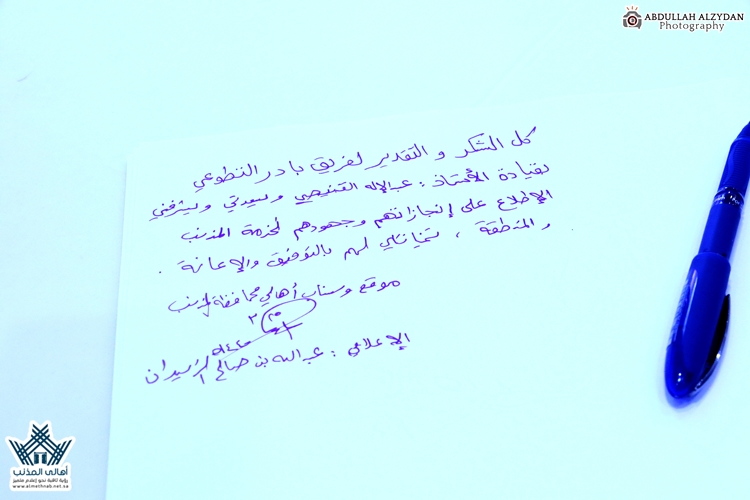 ABDULLAH ALZYDAN
Photography
كل الشكر و التقدير لفريق بادر التطوعي
بقيادة الأستاذ : عبدالإله القنيصي ويسعدني ويشرفني
الإطلاع على إنجازاتهم وجهودهم لخدمة المذنب
والمنطقة ، تمنياتي لهم بالتوفيق والإعانة .
موقع وسناب أهالي محافظة المذنب
الإعلامي : عبدالله بن صالح
أهالي المذنب
رؤية ثاقبة نحو إعلام متميز
www.almethnab.net.sa